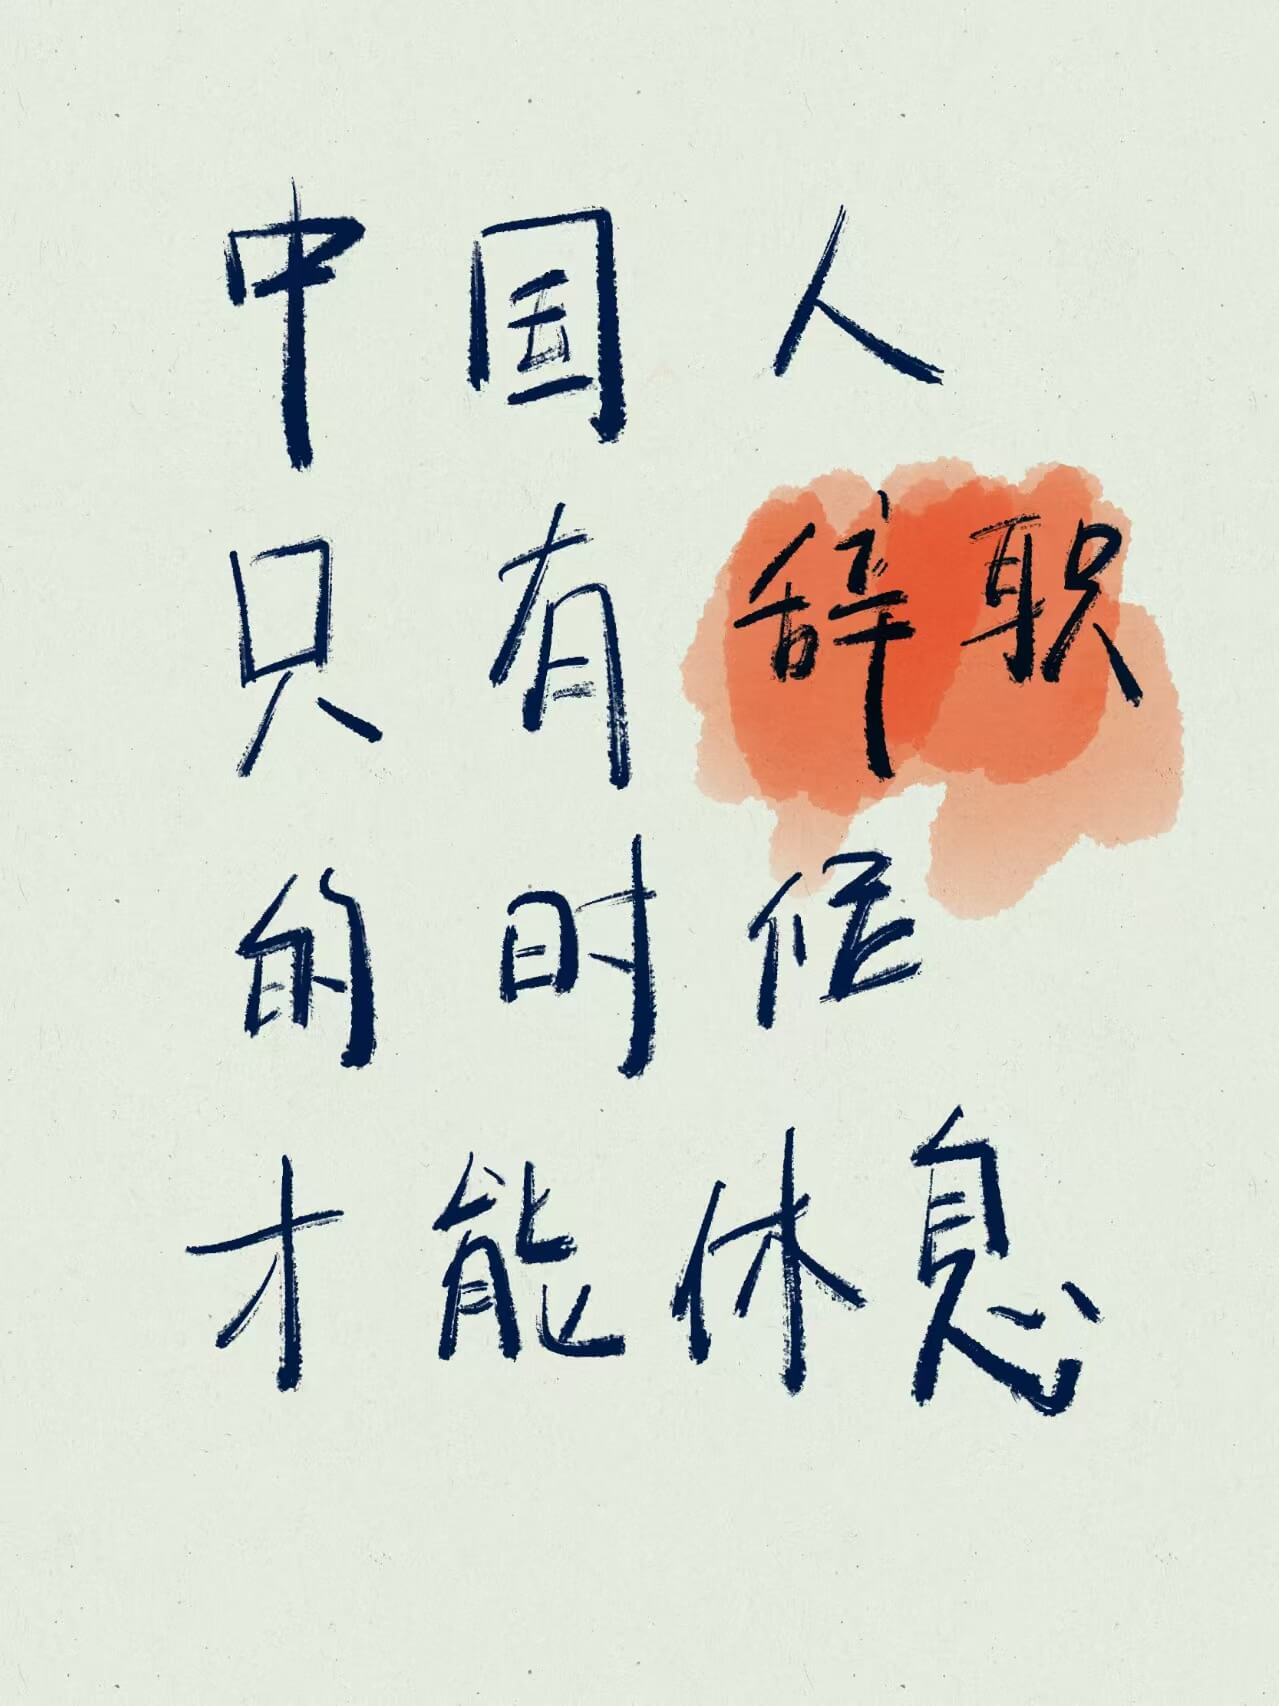 中国人
只有辞职
的时候
才能休息